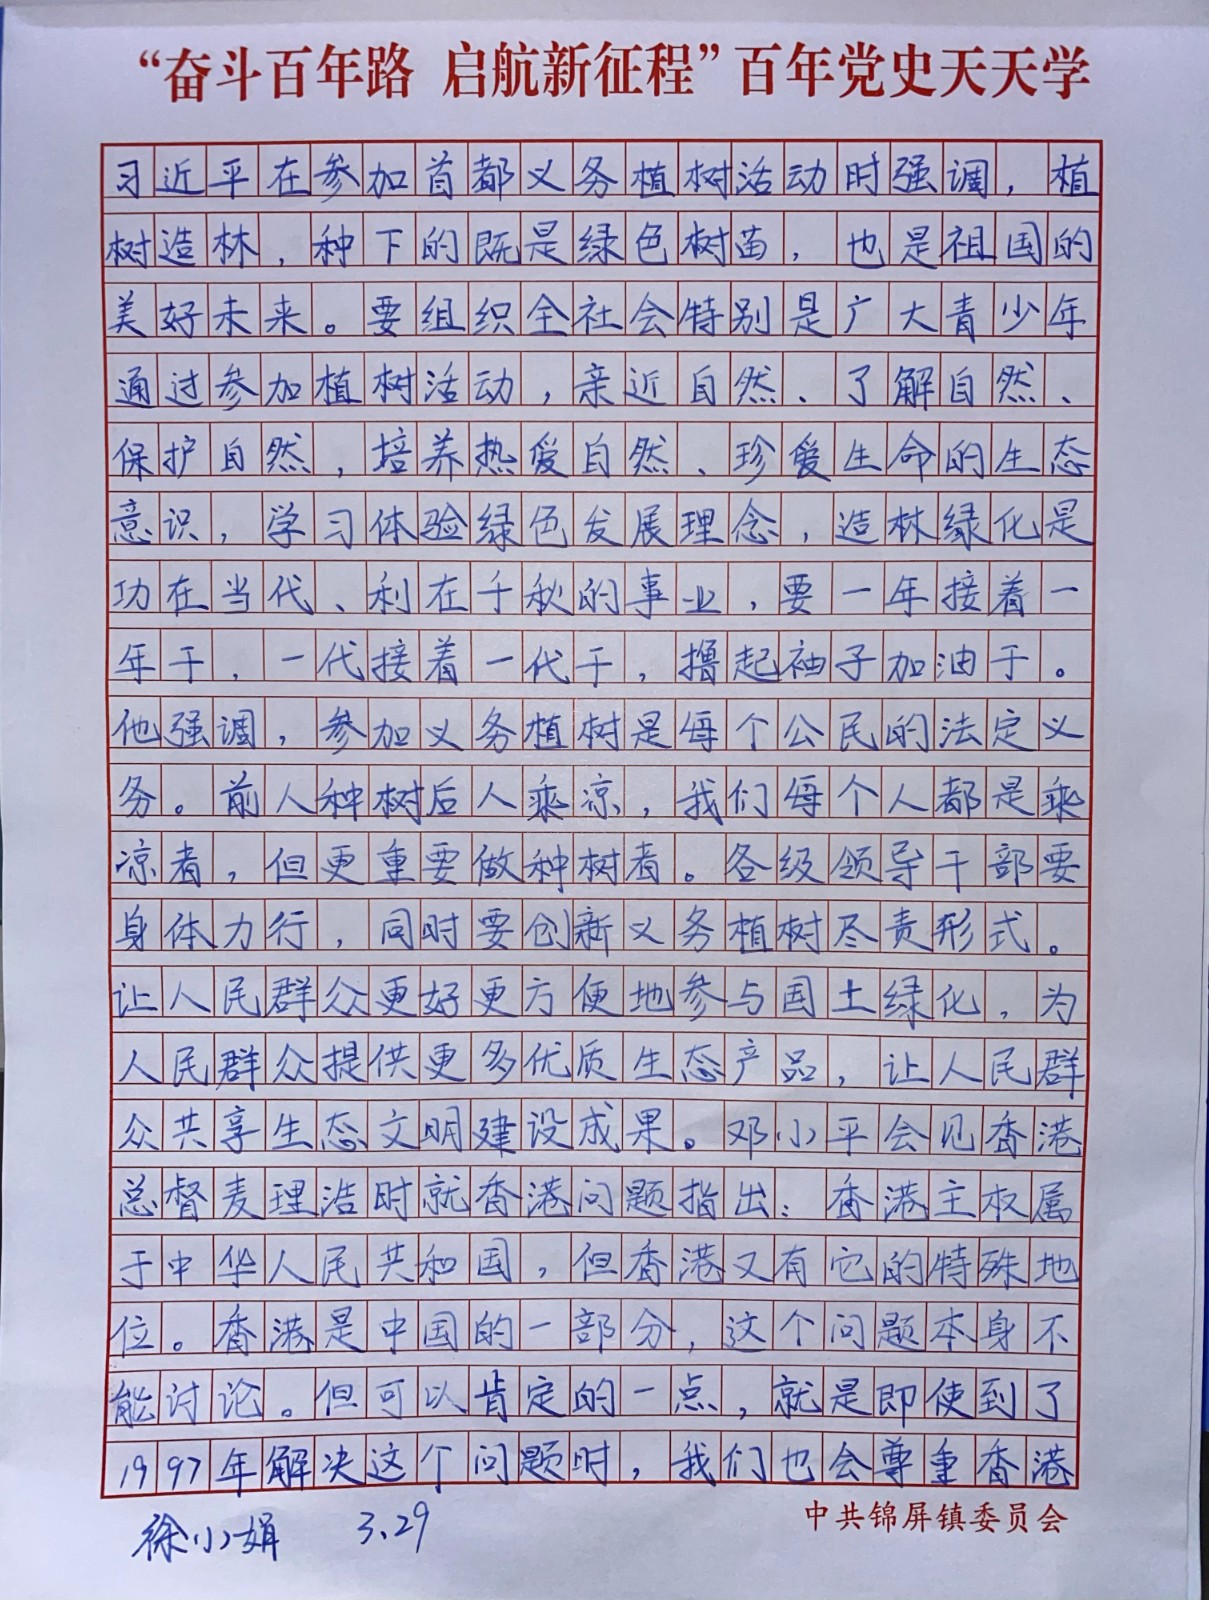 “奋斗百年路 启航新征程”百年党史天天学
习近平在参加首都义务植树活动时强调，植
树造林，种下的既是绿色树苗，也是祖国的
美好未来。要组织全社会特别是广大青少年
通过参加植树活动，亲近自然、了解自然、
保护自然，培养热爱自然、珍爱生命的生态
意识，学习体验绿色发展理念，造林绿化是
功在当代、利在千秋的事业，要一年接着一
年干，一代接着一代干，撸起袖子加油干。
他强调，参加义务植树是每个公民的法定义
务。前人种树后人乘凉，我们每个人都是乘
凉者，但更重要做种树者。各级领导干部要
身体力行，同时要创新义务植树尽责形式。
让人民群众更好更方便地参与国土绿化，为
人民群众提供更多优质生态产品，让人民群
众共享生态文明建设成果。邓小平会见香港
总督麦理浩时就香港问题指出：香港主权属
于中华人民共和国，但香港又有它的特殊地
位。香港是中国的一部分，这个问题本身不
能讨论。但可以肯定的一点，就是即使到了
1997年解决这个问题时，我们也会尊重香港
中共锦屏镇委员会
徐小娟 3.29